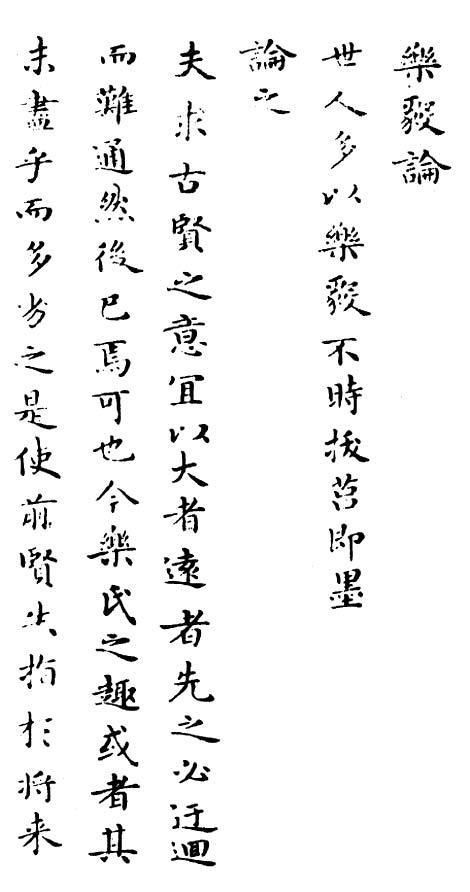 樂毅論
世人多以樂毅不時拔莒即墨
論之
夫求古賢之意宜以大者遠者先之必迂迴
而難通然後已焉可也今樂氏之趣或者其
未盡乎而多劣之是使前賢失指於将来